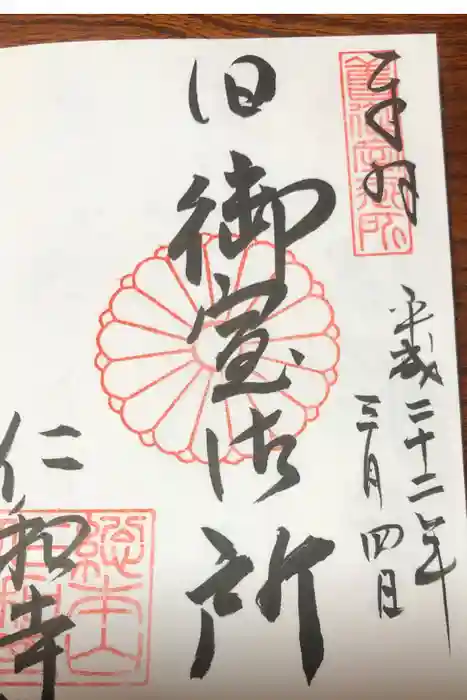 奉拝
平成二十二年
三月四日
旧御室御所
仁和寺
總本山